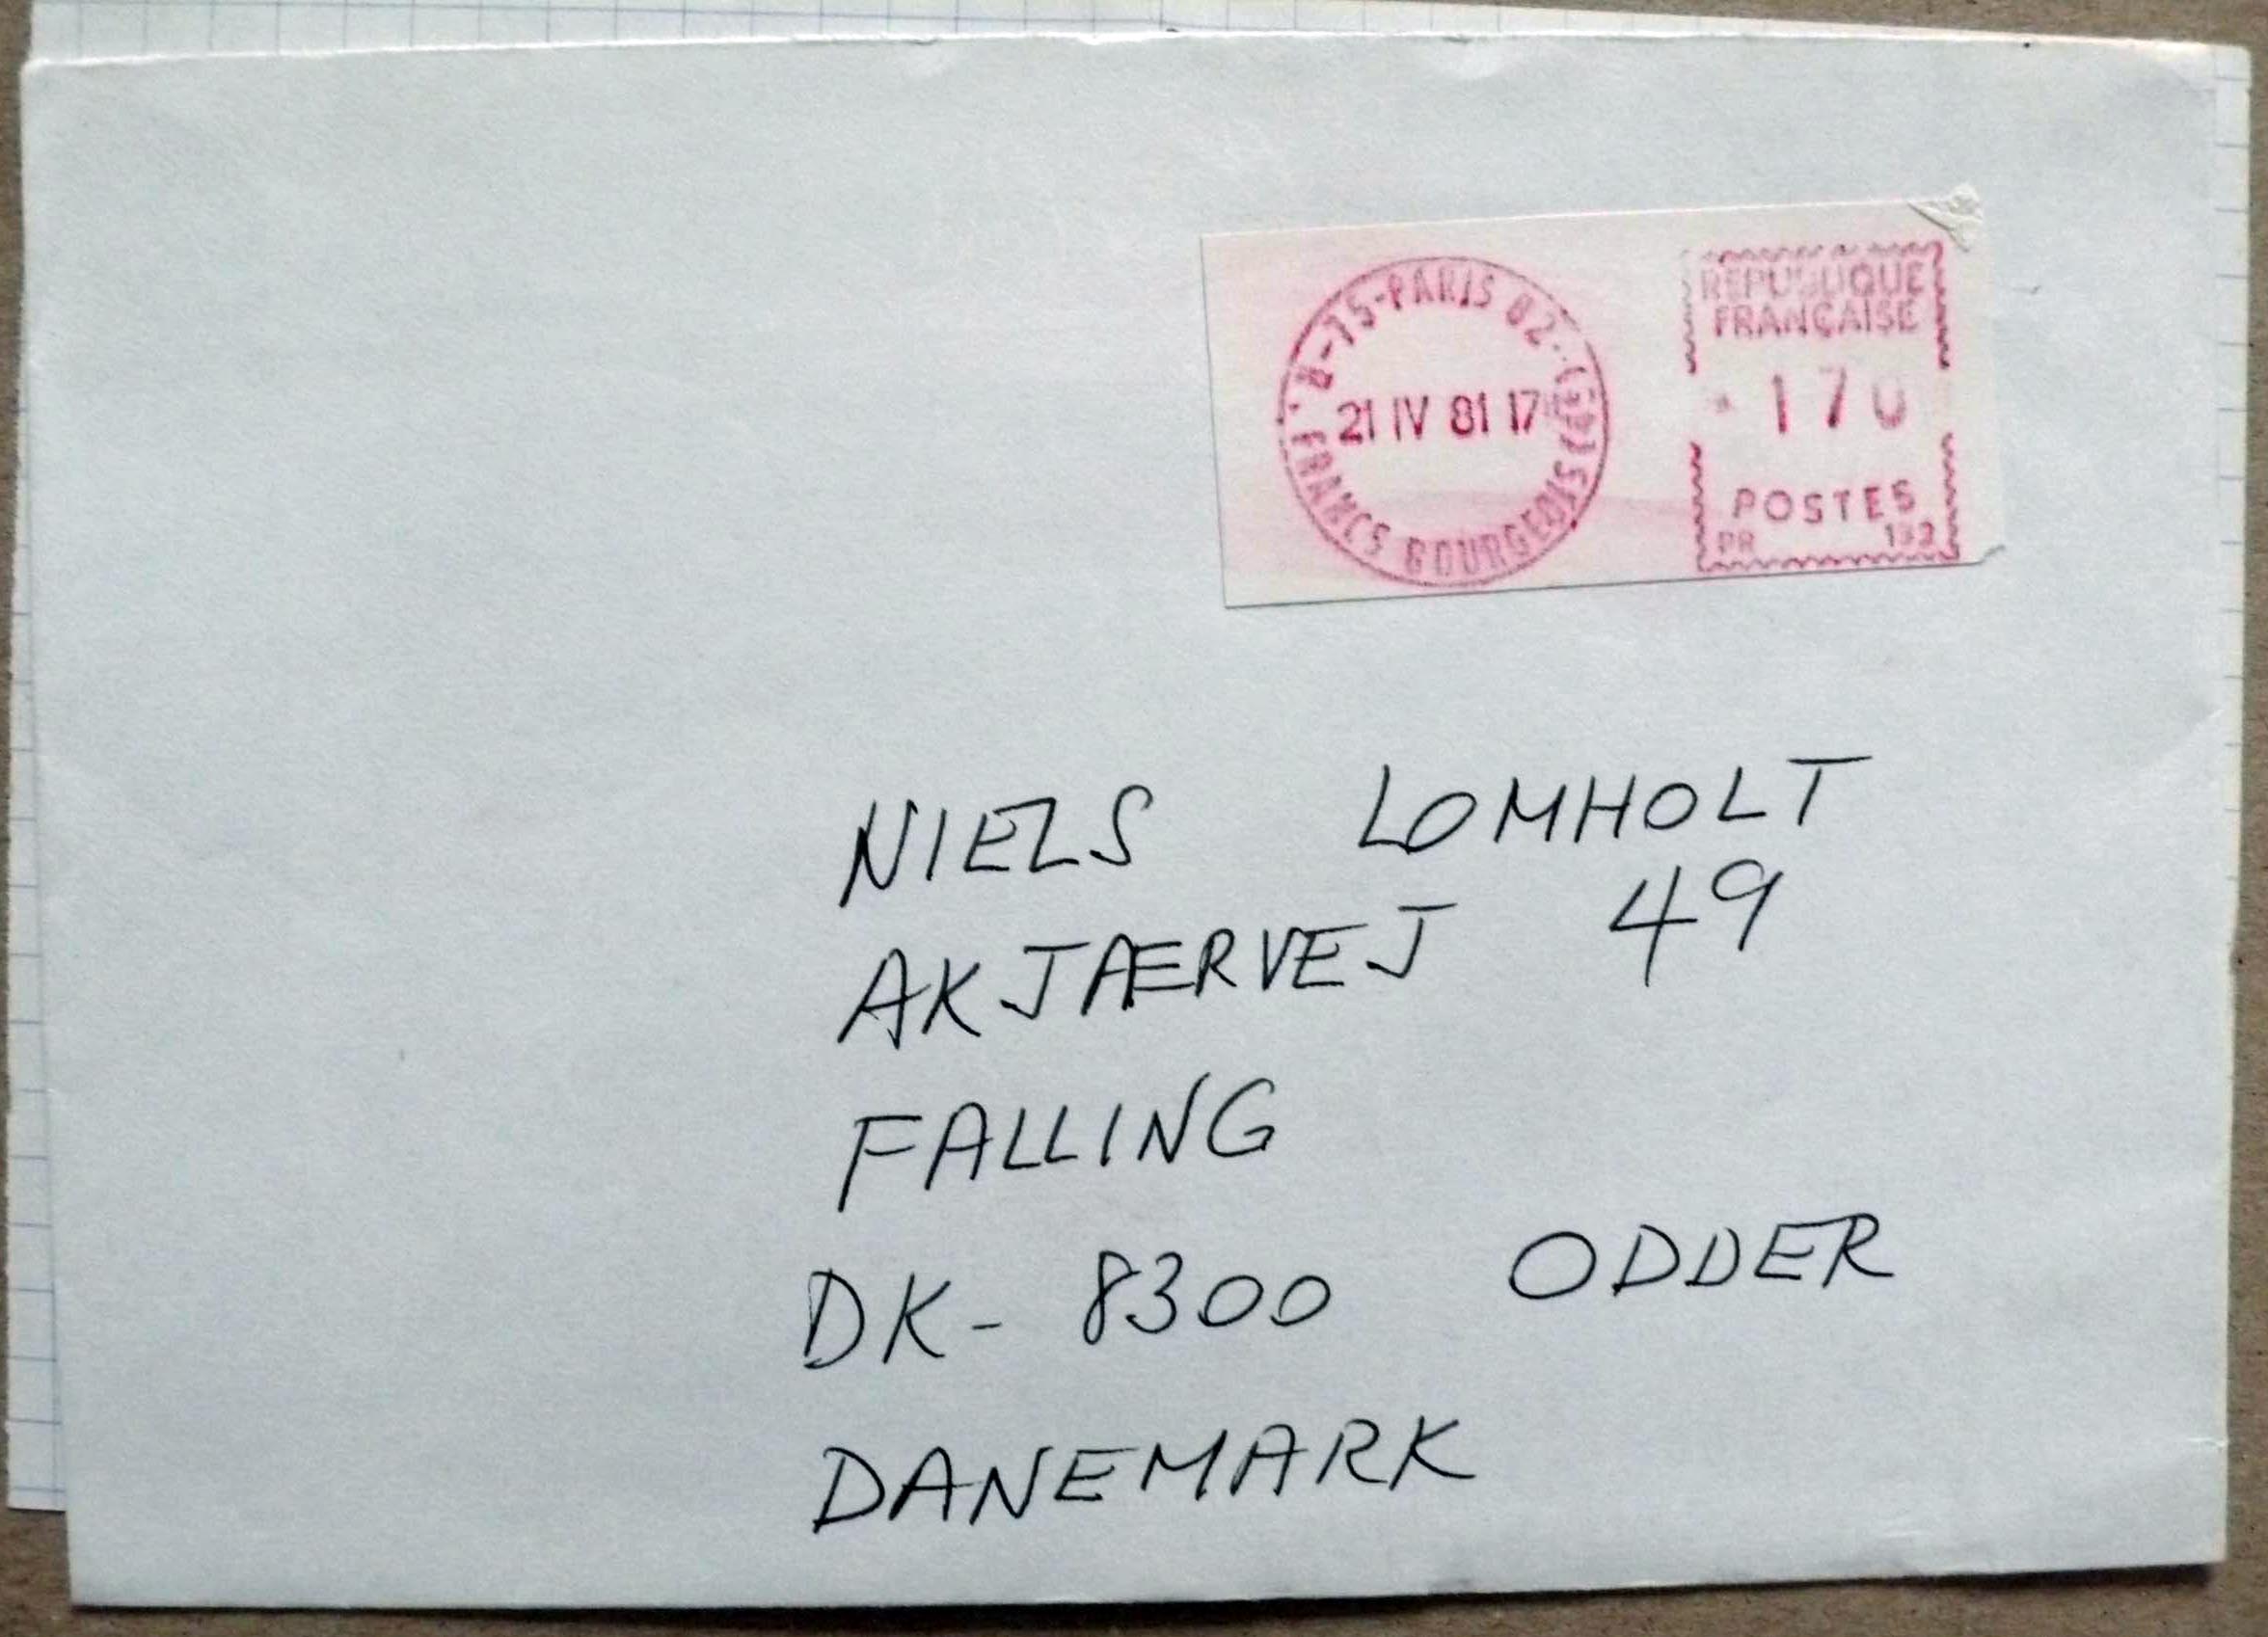 R-75-PARIS 82
21 IV 81 17
FRANCS BOURGEOIS
REPUBLIQUE
FRANÇAISE
170
POSTES
PR
NIELS LOMHOLT
AKJÆRVEJ 49
FALLING
DK- 8300 ODDER
DANEMARK